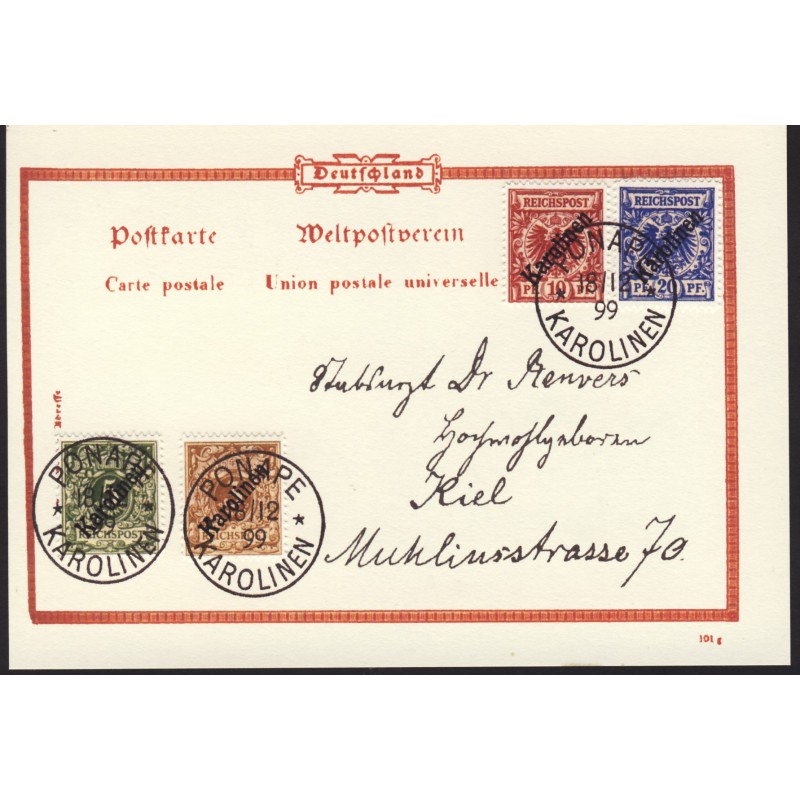 Deutschland
Postkarte Weltpostverein
Carte postale Union postale universelle
REICHSPOST
Karolinen
PF. 10 PF.
REICHSPOST
Karolinen
PF. 20 PF.
PONAPE
18/12
99
KAROLINEN
Stabsarzt Dr Renvers
Hochwohlgeboren
Kiel
Muhliusstrasse 70.
Adresse
PONAPE
18/
KAROLINEN
Karolinen
REICHSPOST
PONAPE
18/12
99
KAROLINEN
Karolinen
REICHSPOST
101 g